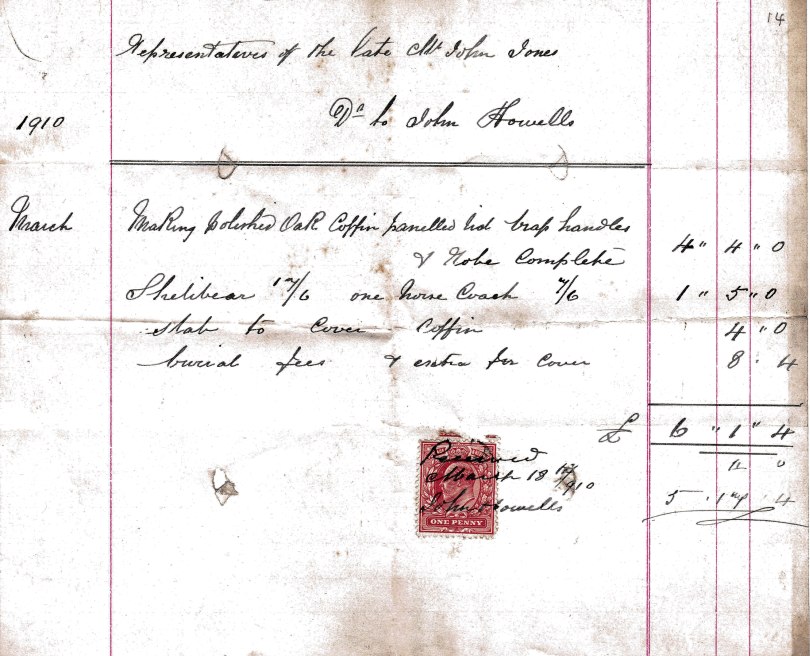 14
Representatives of the Late Mr John Jones
1910 Dr to John Howells
March Making polished Oak Coffin panelled lid brap handles
& Robe Complete 4 " 4 " 0
Shelibear 17/6 one Horse Coach 7/6 1 " 5 " 0
slab to Cover Coffin 4 " 0
burial fees & extra for cover 8 . 4
£ 6 " 1 " 4
Received
March 18th 1910
John Howells
ONE PENNY
5 . 17 . 4